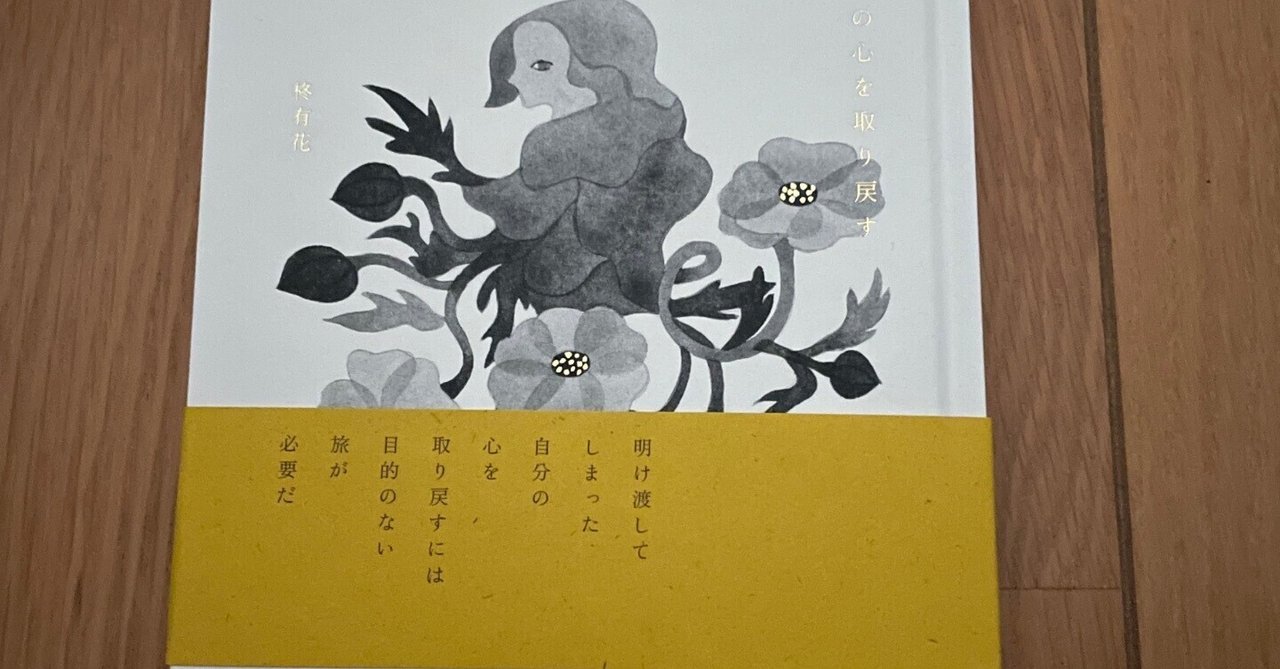 の心を取り戻す
柊有花
明け渡して
しまった
自分の
心を
取り戻すには
目的のない
旅が
必要だ